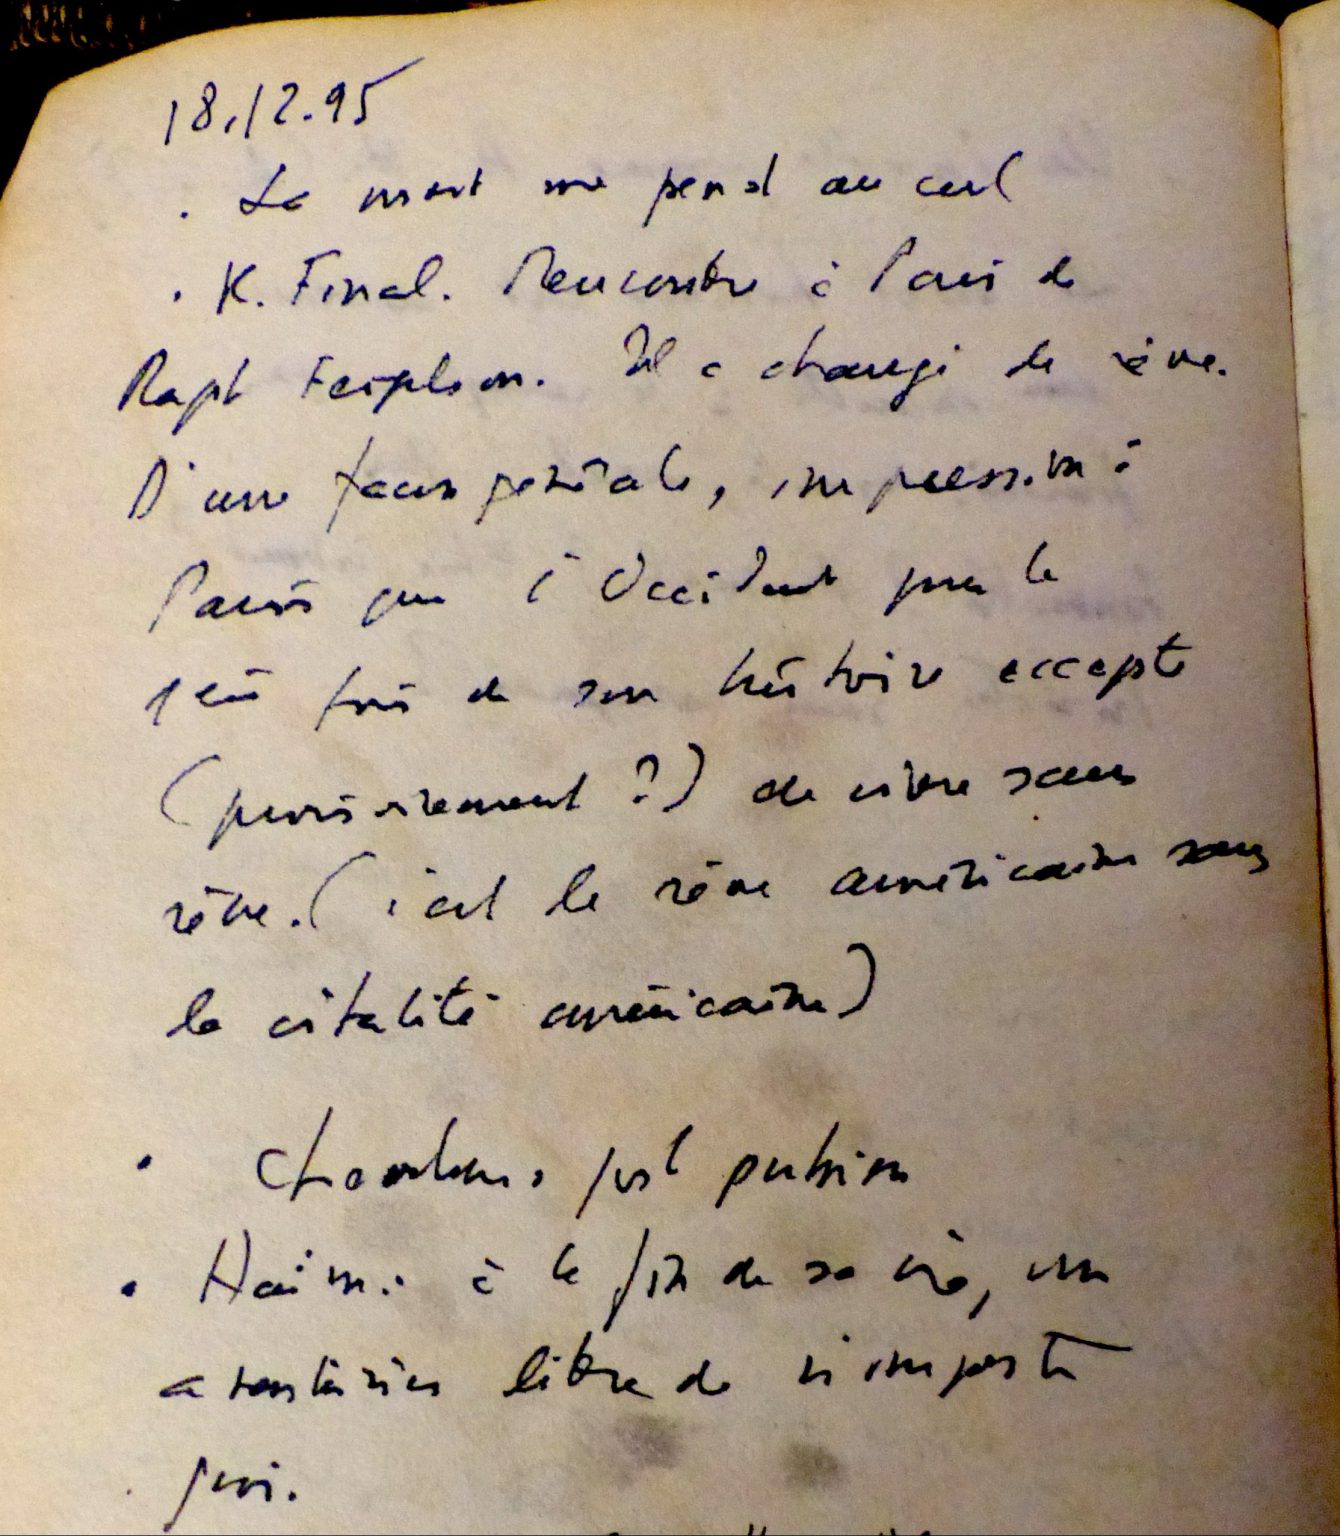 18.12.95
. La mort me pend au cul
. K. Final. Rencontre à Paris de
Raph il a changé de rêve.
D'une façon générale, impression à
Paris que l'Occident pour la
1ère fois de son histoire accepte
(provisoirement ?) de vivre sans
rêve. ( c'est le rêve américain sans
la vitalité américaine)
. post pulsion
. Haïm : à la fin de sa vie, un
aventurier libre de n'importe
quoi.